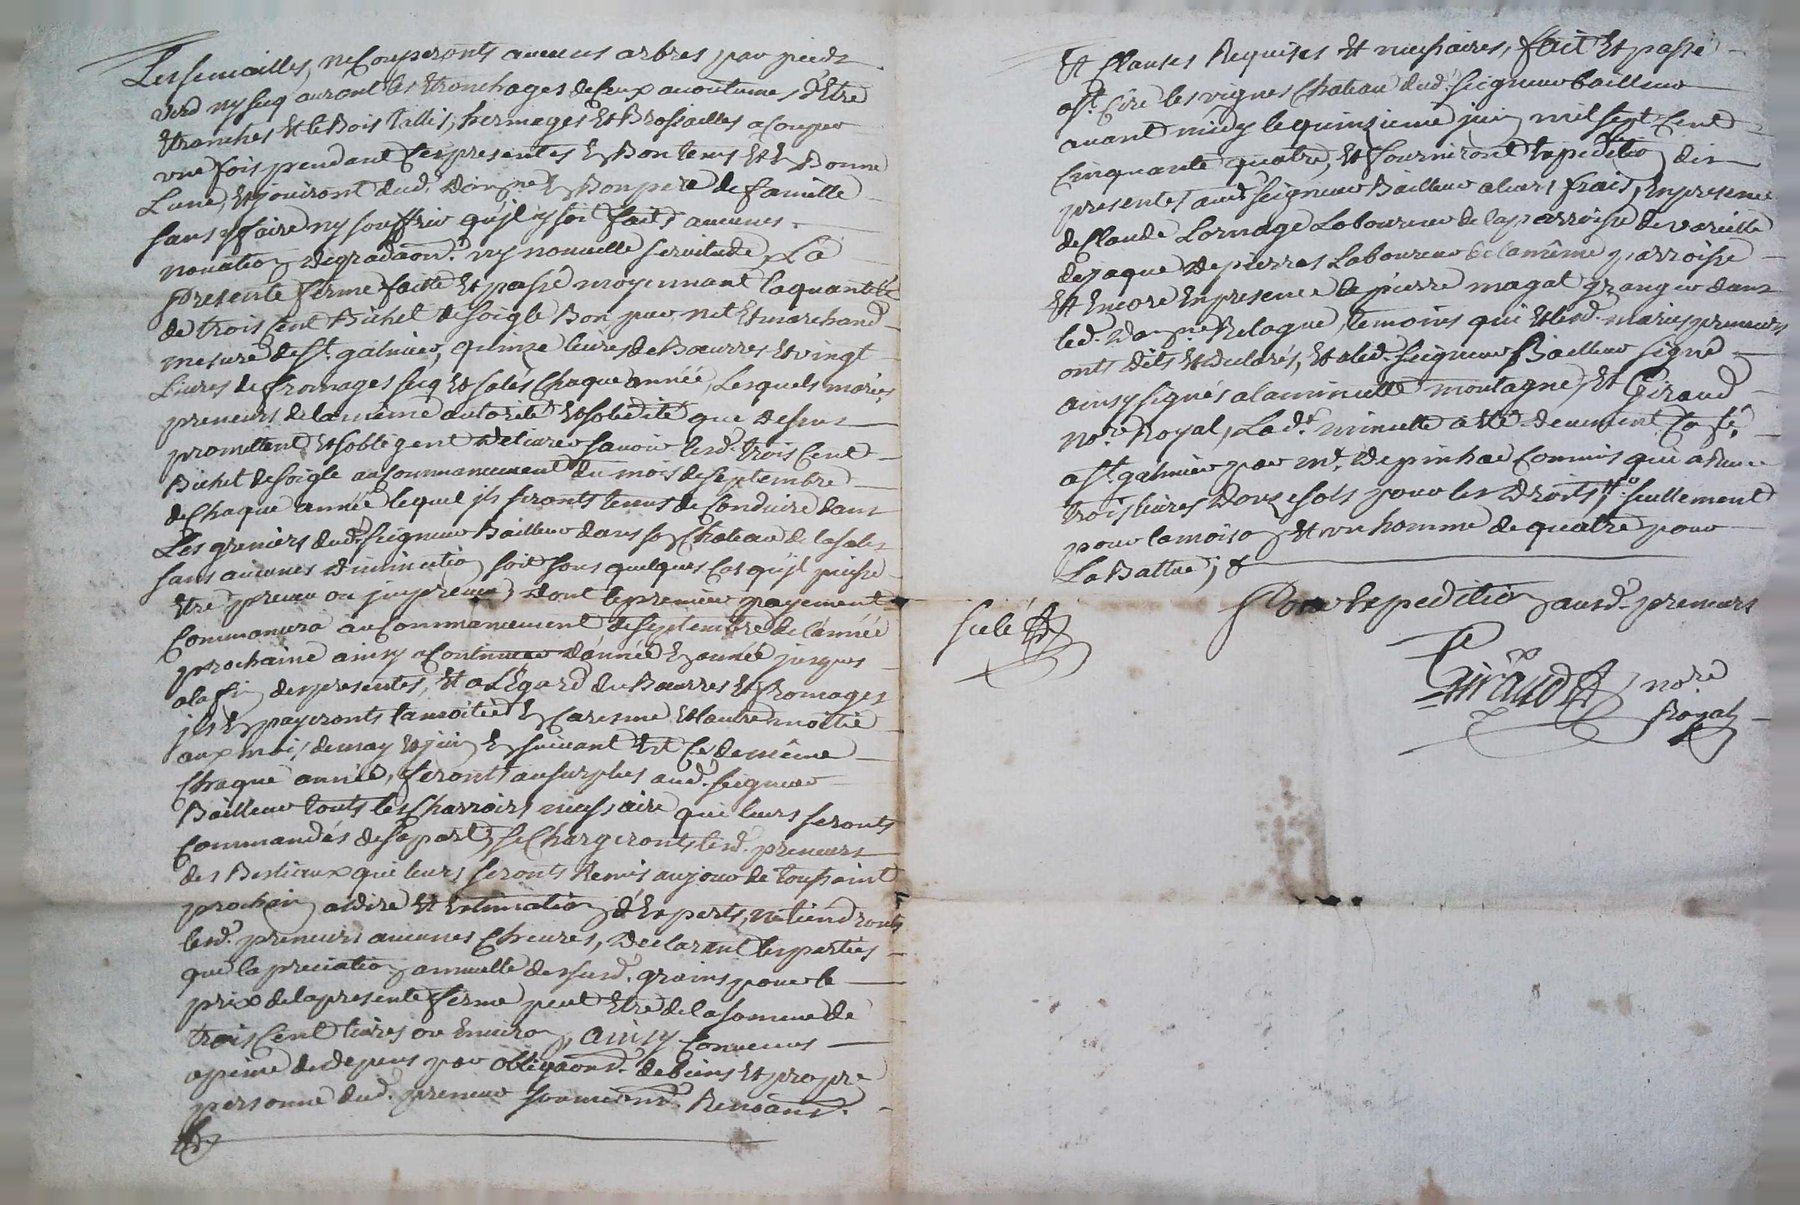 Les semailles, ne Couperonts aucuns arbres par pieds
verd ny secq auront les Etronchages de Ceux acoutumés d'Etre
Etronchés Et le Bois tallis, hermages Et Brossailles a Couper
une fois pendant les presentes En Bon tems Et En Bonne
Lune, Et jouiront dud. Domne En Bon pere de famille
sans y faire ny souffrir qu'jl ny soit fait aucunes
novation degradaon. ny nouvelle servitude, La
presente ferme faitte Et passé moyennant la quantité
de trois Cent Bichet de soigle Bon pur net Et marchand
mesure de St. galmier, quinze livres de Bœurres Et vingt
Livres de fromages secq Et salés Chaque année, Lesquels mariés
preneurs de la même autorité Et solidité que dessus
promettent Et s'obligent delivrer savoir lesd. trois Cent
Bichet de soigle au Commancement du mois de septembre
de Chaque année lequel jls seronts tenus de Conduire dans
Les greniers dud. seigneur Bailleur dans so Chateau de la sale
sans aucunes diminution soit sous quelques Cas qu'jl puisse
Etre preveu ou jmpreveu, dont le premier payement
Commancera au Commancement de septembre de l'année
prochaine ainsy a Continuer d'année En année jusques
a la fin des presentes, Et a L'Egard du Bœurres Et fromages
jls En payeronts la moitié En Caresme Et l'autre moitié
aux mois de may Et juin En suivant Et Ce de même
Chaque année, feront au surplus aud. seigneur
Bailleur touts les Charroirs necessaire qui leurs seronts
Commandés de sa part, se Chargeronts lesd. preneurs
des Bestiaux qui leurs seronts Remis au jour de toussaint
prochain a dire Et Estimation d'Experts, ne tiendronts
lesd. preneurs aucunes Chevres, Declarant les parties
que la preciation annuelle des susd. grains pour le
prix de la presente ferme peut Etre de la somme de
trois Cent livres ou Enviro, ainsy Convenus
a peine de depens par obligaons. de biens Et propre
personne dud. preneur soumions. Renoans.
Et Clauses Requises Et necessaires, fait Et passé
a St. Cire les vignes Chateau dud. seigneur bailleur
avant midy le quinzieme juin mil sept Cent
Cinquante quatre, Et fourniront Expedition des
presentes aud. seigneur Bailleur a leurs frais, En presence
de Claude Lornage Laboureur de la parroisse de vareille
de jaque depierres Laboureur de la même parroisse
Et Encore En presence de pierre magat granger dans
led. Domne Relague, temoins qui Et lesd. mariés preneurs
onts dits Et declarés, Et led. seigneur Bailleur signé
ainsy signés a la minutte montagne, Et Giraud
nore. Royal, Lad. minutte a Eté deuement Collée
a St. galmier par mr. depinhac Commis qui a Receu
trois livres Douze sols pour les Droits seullement
pour la moiso Et un homme de quatre pour
La Battue; &
Pour Expedition ausd. preneurs
scelé
Giraud nore
Royal